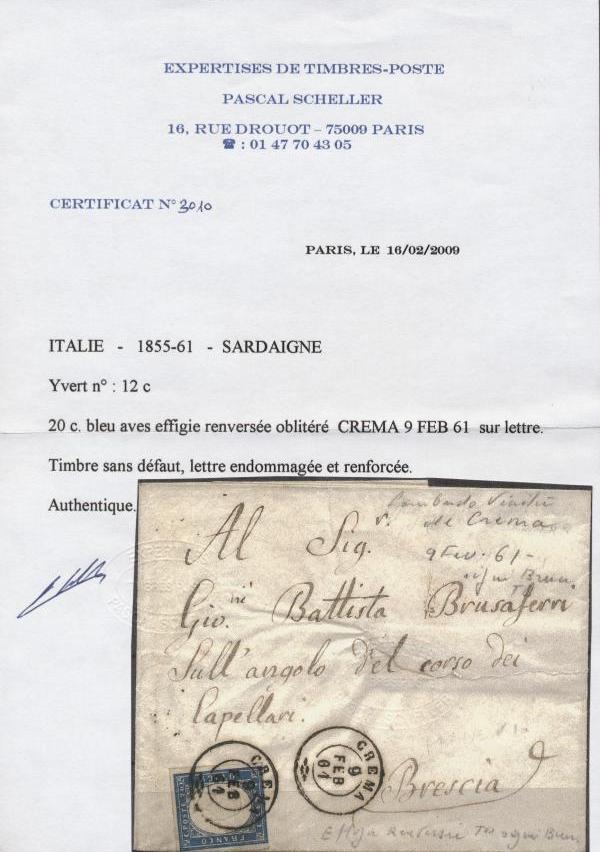 EXPERTISES DE TIMBRES-POSTE
PASCAL SCHELLER
16, RUE DROUOT – 75009 PARIS
☎ : 01 47 70 43 05
CERTIFICAT N° 3010
PARIS, LE 16/02/2009
ITALIE - 1855-61 - SARDAIGNE
Yvert n° : 12 c
20 c. bleu aves effigie renversée oblitéré CREMA 9 FEB 61 sur lettre.
Timbre sans défaut, lettre endommagée et renforcée.
Authentique.
Lombardo
de Crema
9 Fev. 61-
Al Sig.
Gio. Battista Brusaferri
Sull'angolo del corso dei
Capellari.
Brescia
CREMA
9
FEB
61
CREMA
9
FEB
61